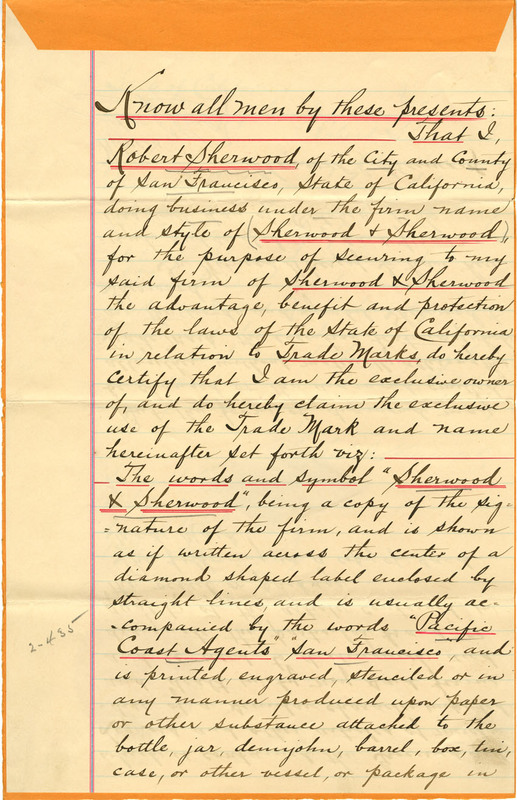 Know all men by these presents:
That I,
Robert Sherwood, of the City and County
of San Francisco, State of California,
doing business under the firm name
and style of (Sherwood & Sherwood),
for the purpose of securing to my
said firm of Sherwood & Sherwood
the advantage, benefit and protection
of the laws of the State of California
in relation to Trade Marks, do hereby
certify that I am the exclusive owner
of, and do hereby claim the exclusive
use of the Trade Mark and name
hereinafter set forth viz:
The words and symbol "Sherwood
& Sherwood", being a copy of the sig-
-nature of the firm, and is shown
as if written across the center of a
diamond shaped label enclosed by
straight lines, and is usually ac-
-companied by the words "Pacific
Coast Agents" "San Francisco", and
is printed, engraved, stenciled or in
any manner produced upon paper
or other substance attached to the
bottle, jar, demijohn, barrel, box, tin,
case, or other vessel, or package in
2-485